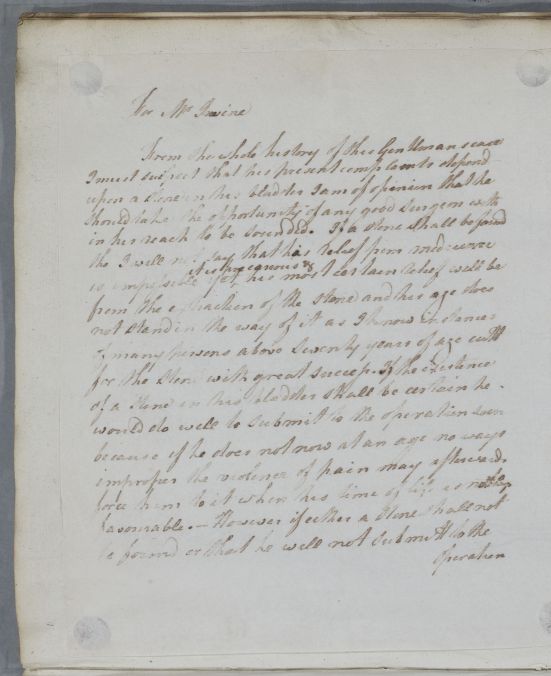 For Mr Irvine
From the whole history of this Gentlemans case
I must suspect that his present complaints depend
upon a stone in his bladder I am of opinion that he
should take the opportunity of any good surgeon with
in his reach to be sounded. If a stone shall be found
tho I will not say that his relief from medicine
is impossible yet his most certain relief will be
from the extraction of the stone and his age does
not stand in the way of it as I know instances
of many persons above seventy years of age cutt
for the stone with great success. If the existence
of a stone in his bladder shall be certain he
would do well to submit to the operation soon
because if he does not now at an age no ways
improper the violence of pain may afterwards
force him to it when his time of life is not so
favourable. — However if either a stone shall not
be found or that he will not submitt to the
operation